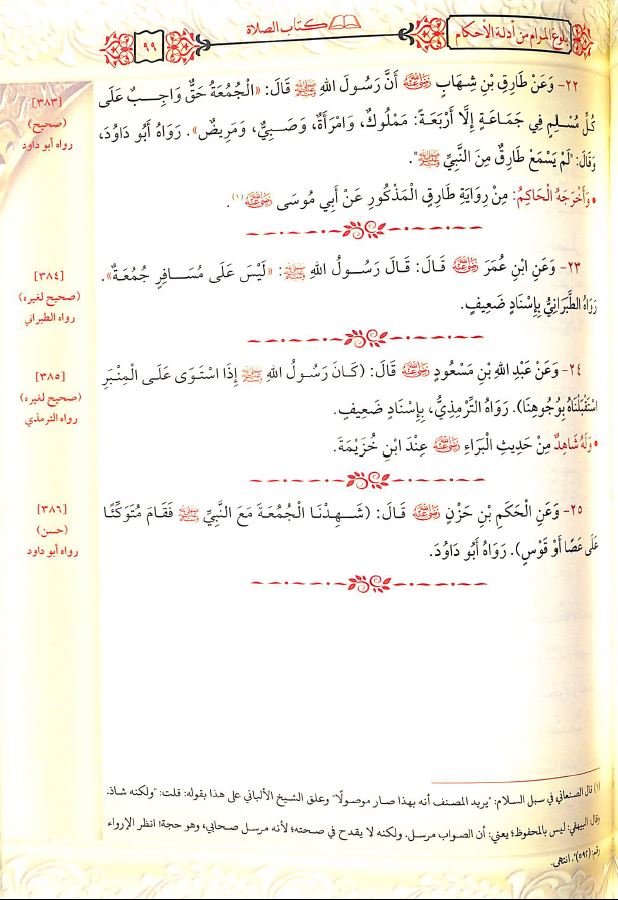 بلوغ المرام من أدلة الأحكام
كتاب الصلاة
٩٩
٢٢- وَعَنْ طَارِقِ بْنِ شِهَابٍ رضي الله عنه أَنَّ رَسُولَ اللهِ ﷺ قَالَ: «الْجُمُعَةُ حَقٌّ وَاجِبٌ عَلَى
كُلِّ مُسْلِمٍ فِي جَمَاعَةٍ إِلَّا أَرْبَعَةً: مَمْلُوكٌ، وَامْرَأَةٌ، وَصَبِيٌّ، وَمَرِيضٌ». رَوَاهُ أَبُو دَاوُدَ،
وَقَالَ: "لَمْ يَسْمَعْ طَارِقٌ مِنَ النَّبِيِّ ﷺ".
• وَأَخْرَجَهُ الْحَاكِمُ: مِنْ رِوَايَةِ طَارِقٍ الْمَذْكُورِ عَنْ أَبِي مُوسَى رضي الله عنه (١).
[٣٨٣]
(صحيح)
رواه أبو داود
٢٣- وَعَنِ ابْنِ عُمَرَ رضي الله عنه قَالَ: قَالَ رَسُولُ اللهِ ﷺ: «لَيْسَ عَلَى مُسَافِرٍ جُمُعَةٌ».
رَوَاهُ الطَّبَرَانِيُّ بِإِسْنَادٍ ضَعِيفٍ.
[٣٨٤]
(صحيح لغيره)
رواه الطبراني
٢٤- وَعَنْ عَبْدِ اللهِ بْنِ مَسْعُودٍ رضي الله عنه قَالَ: (كَانَ رَسُولُ اللهِ ﷺ إِذَا اسْتَوَى عَلَى الْمِنْبَرِ
اسْتَقْبَلْنَاهُ بِوُجُوهِنَا). رَوَاهُ التِّرْمِذِيُّ، بِإِسْنَادٍ ضَعِيفٍ.
• وَلَهُ شَاهِدٌ مِنْ حَدِيثِ الْبَرَاءِ رضي الله عنه عِنْدَ ابْنِ خُزَيْمَةَ.
[٣٨٥]
(صحيح لغيره)
رواه الترمذي
٢٥- وَعَنِ الْحَكَمِ بْنِ حَزْنٍ رضي الله عنه قَالَ: (شَهِدْنَا الْجُمُعَةَ مَعَ النَّبِيِّ ﷺ فَقَامَ مُتَوَكِّئًا
عَلَى عَصًا أَوْ قَوْسٍ). رَوَاهُ أَبُو دَاوُدَ.
[٣٨٦]
(حسن)
رواه أبو داود
(١) قال الصنعاني في سبل السلام: "يريد المصنف أنه بهذا صار موصولًا" وعلق الشيخ الألباني على هذا بقوله: قلت: "ولكنه شاذ.
وقال: البيهقي: ليس بالمحفوظ؛ يعني: أن الصواب مرسل. ولكنه لا يقدح في صحته؛ لأنه مرسل صحابي، وهو حجة! انظر الإرواء
رقم: (٥٩٢)". انتهى.